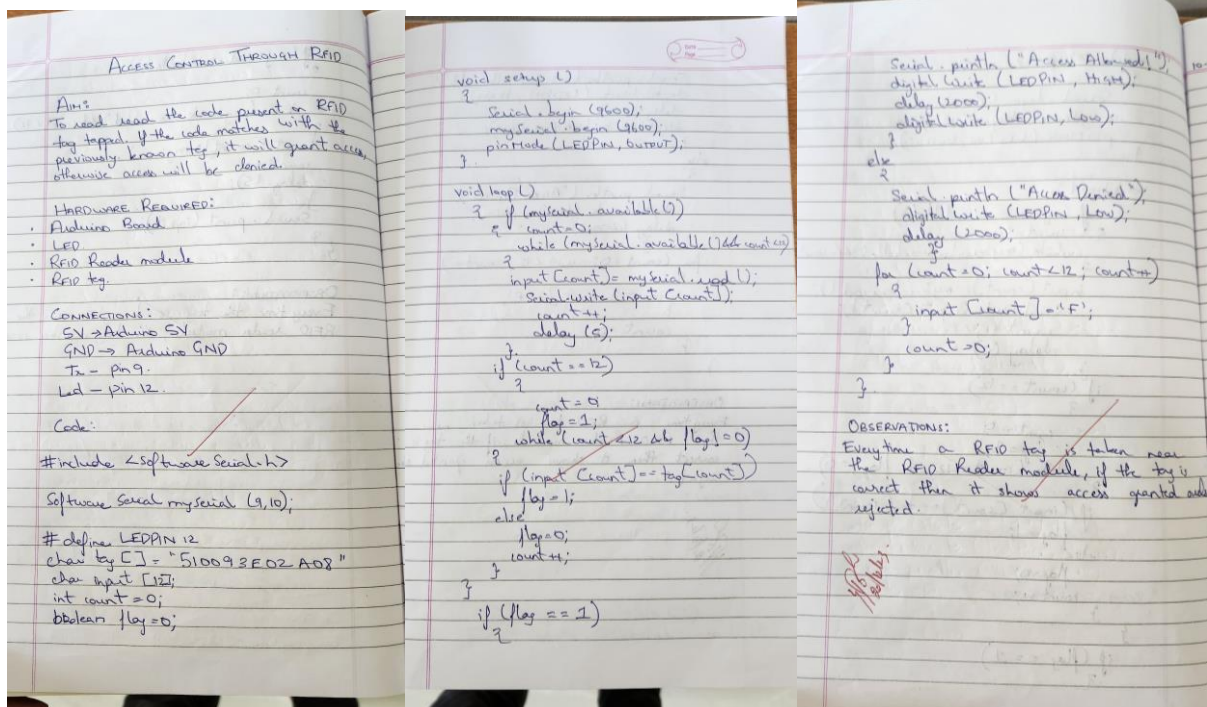 ACCESS CONTROL THROUGH RFID
AIM:
To read read the code present on RFID
tag tapped. If the code matches with the
previously known tag, it will grant access,
otherwise access will be denied.
HARDWARE REQUIRED:
· Arduino Board
· LED
· RFID Reader module
· RFID tag.
CONNECTIONS:
5V → Arduino 5V
GND → Arduino GND
Tx - pin 9.
Led - pin 12.
Code:
#include <Software Serial.h>
Software Serial mySerial (9,10);
# define LEDPIN 12
char tag [] = "510093E02A08"
char input [12];
int count = 0;
boolean flag = 0;
void setup ()
{
Serial.begin (9600);
mySerial.begin (9600);
pinMode (LEDPIN, OUTPUT);
}
void loop ()
{ if (mySerial.available ())
{ count = 0;
while (mySerial.available () && count <12)
{
input [count] = mySerial.read ();
Serial.write (input [count]);
count ++;
delay (5);
}
if (count == 12)
{
count = 0
flag = 1;
while (count <12 && flag != 0)
{
if (input [count] == tag [count])
flag = 1;
else
flag = 0;
count ++;
}
}
if (flag == 1)
{
Serial.println ("Access Allowed!");
digital Write (LEDPIN, HIGH);
delay (2000);
digital Write (LEDPIN, LOW);
}
else
{
Serial.println ("Access Denied");
digital write (LEDPIN, LOW);
delay (2000);
}
for (count = 0; count <12; count++)
{
input [count] = 'F';
}
count = 0;
}
}
OBSERVATIONS:
Everytime a RFID tag is taken near
the RFID Reader module, if the tag is
correct then it shows access granted
rejected.